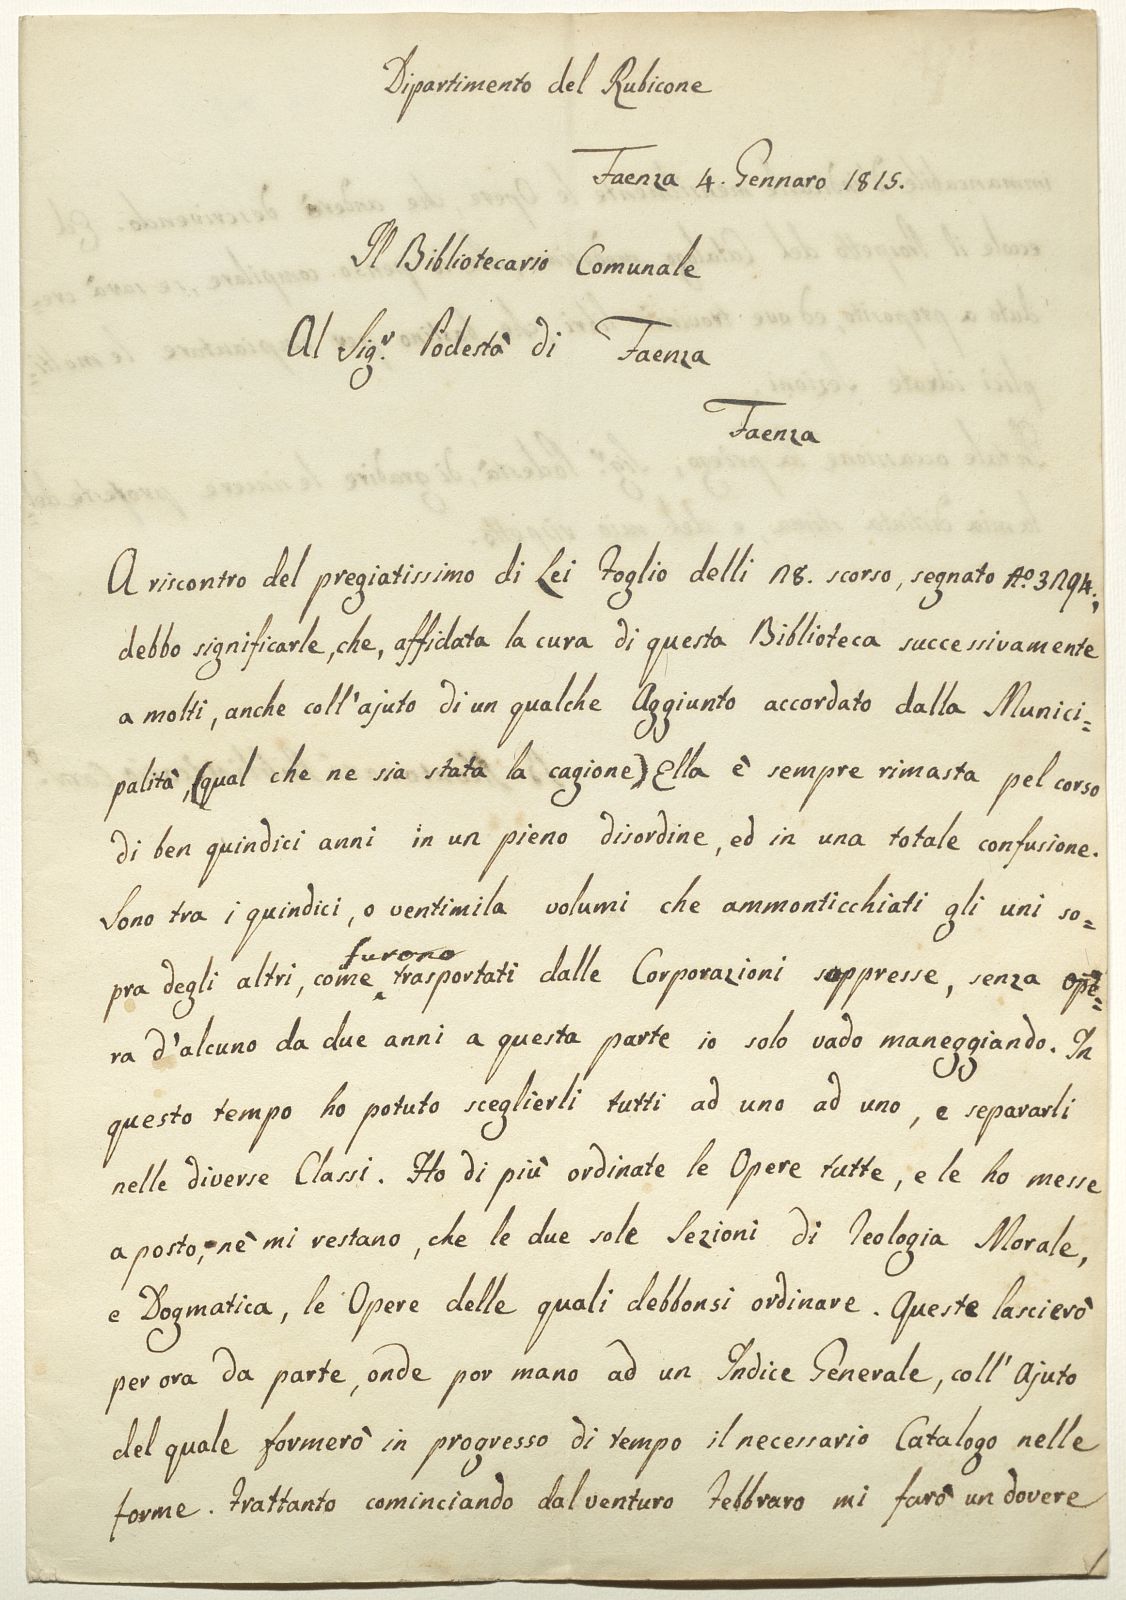 Dipartimento del Rubicone
Faenza 4. Gennaro 1815.
Il Bibliotecario Comunale
Al Sigr. Podestà di Faenza
Faenza
A riscontro del pregiatissimo di Lei Foglio delli 28. scorso, segnato No. 3294.,
debbo significarle, che, affidata la cura di questa Biblioteca successivamente
a molti, anche coll'ajuto di un qualche Aggiunto accordato dalla Munici=
palità, (qual che ne sia stata la cagione) Ella è sempre rimasta pel corso
di ben quindici anni in un pieno disordine, ed in una totale confusione.
Sono tra i quindici, o ventimila volumi che ammonticchiati gli uni so=
pra degli altri, come furono trasportati dalle Corporazioni soppresse, senza ope=
ra d'alcuno da due anni a questa parte io solo vado maneggiando. In
questo tempo ho potuto sceglierli tutti ad uno ad uno, e separarli
nelle diverse Classi. Ho di più ordinate le Opere tutte, e le ho messe
a posto, nè mi restano, che le due sole Sezioni di Teologia Morale,
e Dogmatica, le Opere delle quali debbonsi ordinare. Queste lascierò
per ora da parte, onde por mano ad un Indice Generale, coll'Ajuto
del quale formerò in progresso di tempo il necessario Catalogo nelle
forme. Frattanto cominciando dal venturo Febbraro mi farò un dovere